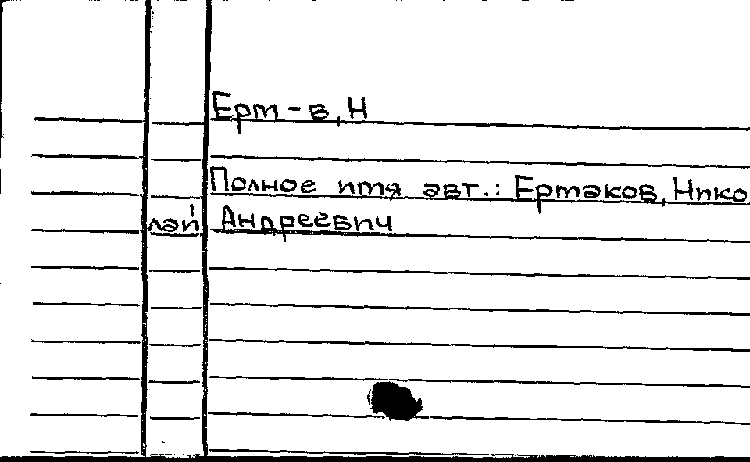 Ерм-в, Н
Полное имя авт.: Ермаков, Нико
лай Андреевич